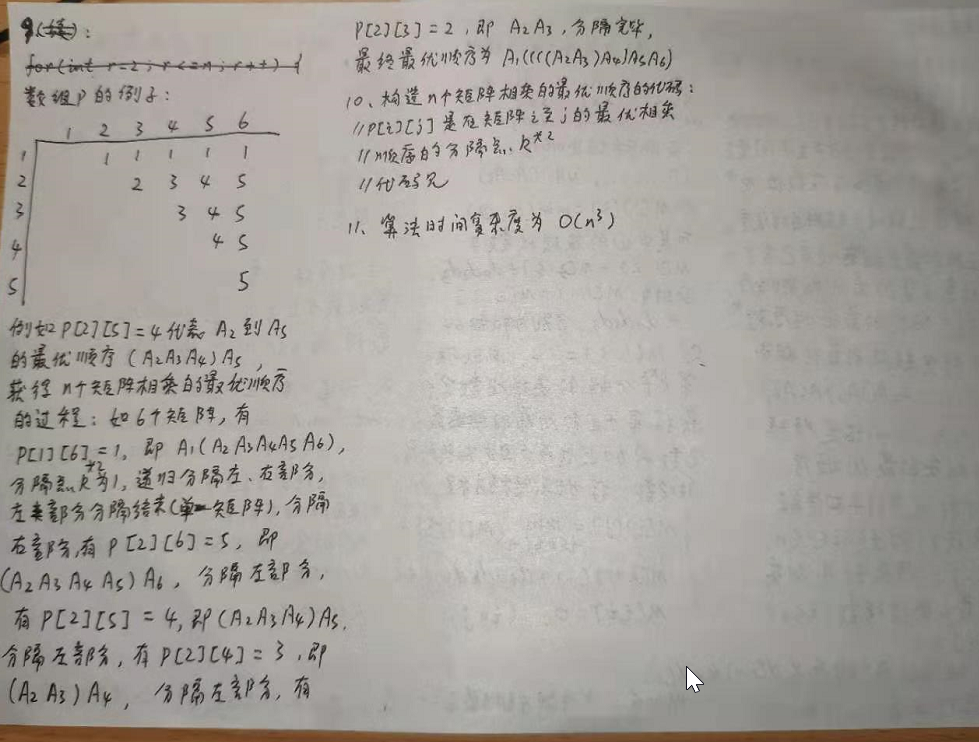 9(续):
for(int r=2;r<=n;r++){
数组P的例子:
1 2 3 4 5 6
1 1 1 1 1 1
2 2 3 4 5
3 3 4 5
4 4 5
5 5
例如P[2][5]=4代表A2到A5
的最优顺序(A2A3A4)A5,
获得n个矩阵相乘的最优顺序
的过程:如6个矩阵,有
P[1][6]=1,即A1(A2A3A4A5A6),
分隔点k*2为1,递归分隔左、右部分,
左部分分隔结束(单一矩阵),分隔
右部分,有P[2][6]=5,即
(A2A3A4A5)A6,分隔左部分,
有P[2][5]=4,即(A2A3A4)A5,
分隔左部分,有P[2][4]=3,即
(A2A3)A4,分隔左部分,有
P[2][3]=2,即A2A3,分隔完毕,
最终最优顺序为A1((((A2A3)A4)A5A6)
10、构造n个矩阵相乘的最优顺序的代码:
//P[i][j]是在矩阵i至j的最优相乘
//顺序的分隔点k*2
//代码见
11、算法时间复杂度为O(n³)